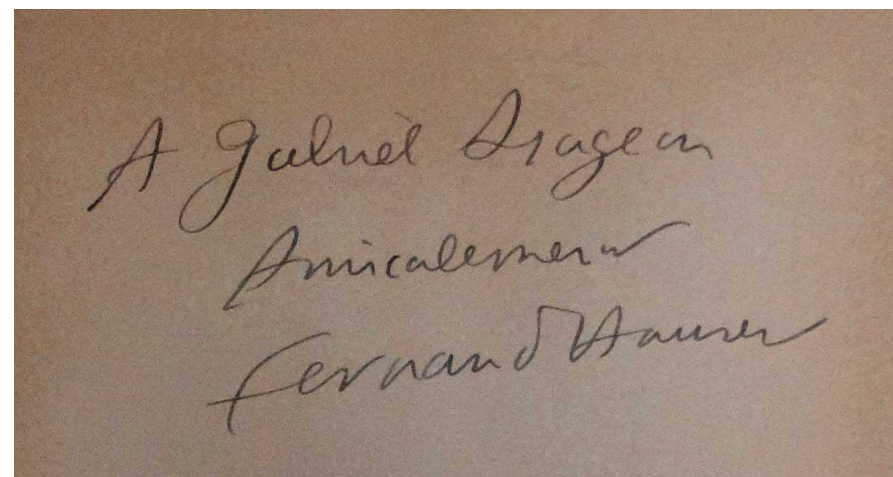 A Gabriel
Amicalement
Fernand Hauser